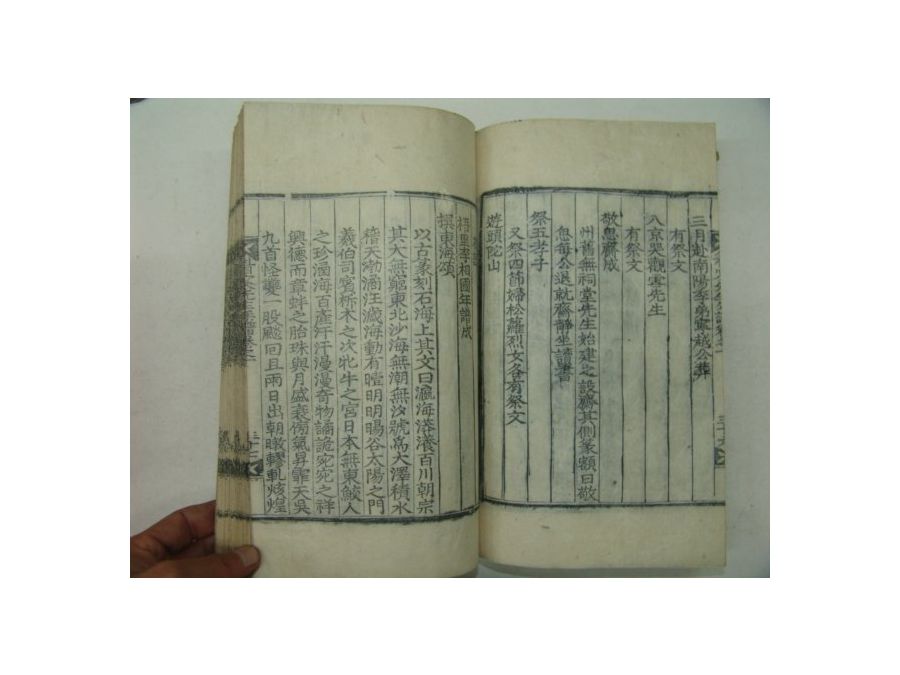 三月赴南陽李弟寧越公葬
有祭文
八京哭觀雪先生
有祭文
敬思齋成
州舊無祠堂先生始建之設齋其側篆額曰敬
思每公退就齋靜坐讀書
祭五孝子
又祭四節婦松蘿烈女各有祭文
遊頭陀山
梧里李相國年譜成
撰東海頌
以古篆刻石海上其文曰瀛海漭瀁百川朝宗
其大無窮東北沙海無潮無汐號爲大澤積水
稽天浡潏汪濊海動有曀明明暘谷太陽之門
羲伯司賓析木之次牝牛之宮日本無東鮫人
之珍涵海百產汗汗漫漫奇物譎詭宛宛之祥
興德而章蚌之胎珠與月盛衰㴸氣昇霏天吳
九首怪夔一股飇回且雨日出朝暾轇軋炫煌